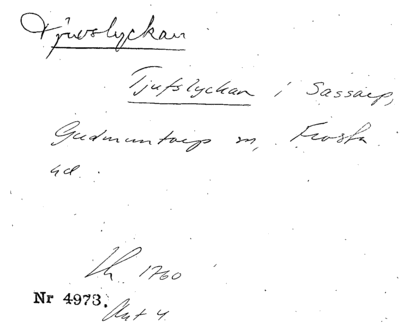 Tjuvslyckan
Tjufslyckan i Sassarp,
Gudmuntorp sn, Frosta
hd.
1760
Nr 4973. Akt 4